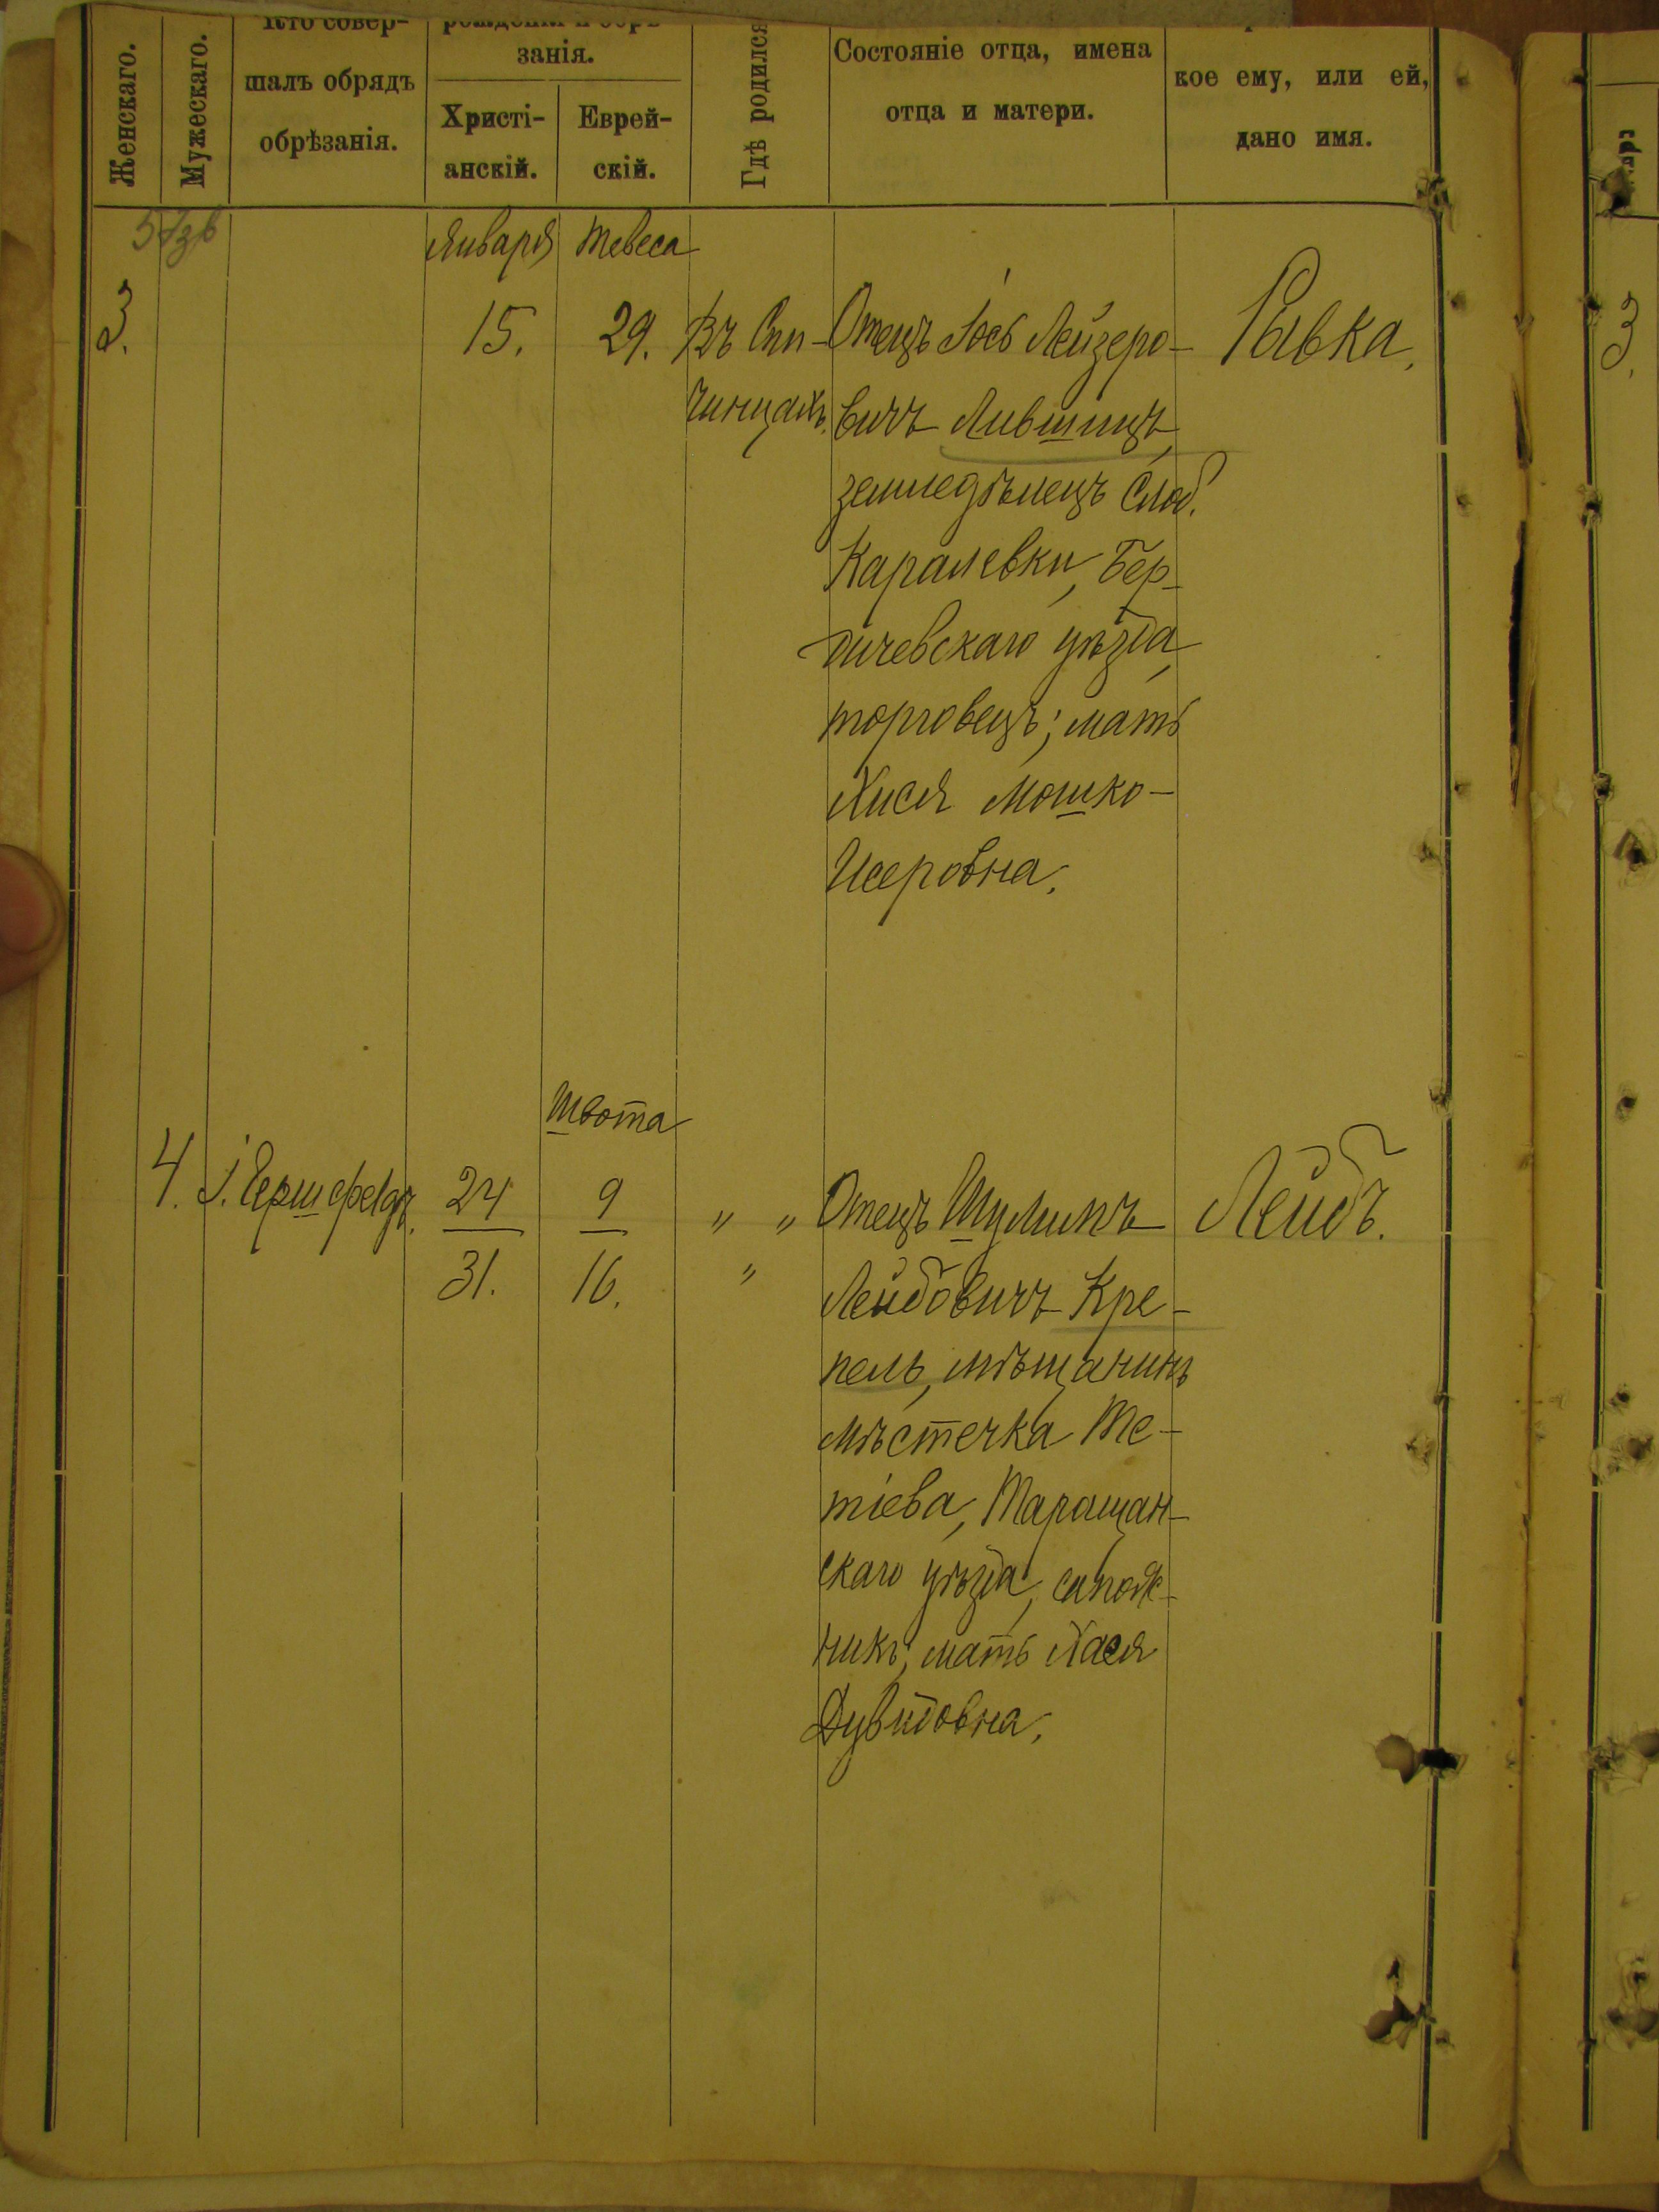 Женскаго.
Мужескаго.
Кто совер-
шалъ обрядъ
обрѣзанія.
рожденія и обрѣ-
занія.
Христі-
анскій.
Еврей-
скій.
Гдѣ родился
Состояніе отца, имена
отца и матери.
кое ему, или ей,
дано имя.
Января Тевеса
3. 15. 29. Въ Спи- Отецъ Іось Лейзеро- Рывка.
чинцахъ. вичъ Лившицъ,
земледѣлецъ Слоб.
Каралевки, Бер-
дичевскаго уѣзда,
торговецъ; мать
Хися Мошко-
Исеровна.
Швота
4. І. Гершфельдъ. 24 9 " " Отецъ Шулимъ Лейбъ.
31. 16. " Лейбовичъ Кре-
пель, мѣщанинъ
мѣстечка Те-
тіева, Таращан-
скаго уѣзда, сапож-
никъ; мать Хася
Дувидовна.
3.